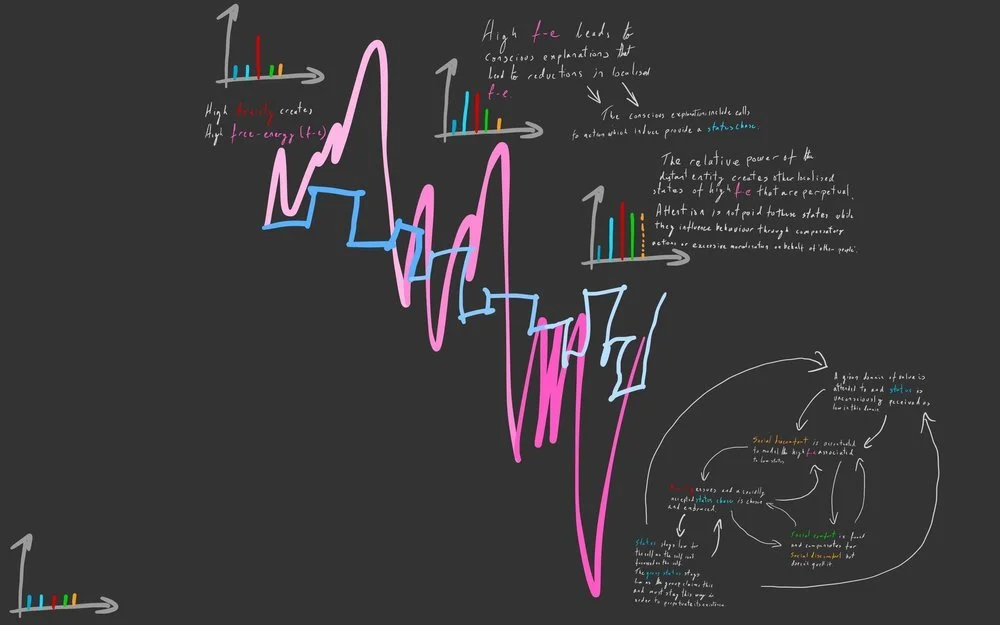 High f-e leads to
conscious explanations that
lead to reductions in localised
f-e.
High anxiety creates
High free-energy (f-e)
The conscious explanations include calls
to action which induce provide a status chase.
The relative power of the
distant entity creates other localised
states of high f-e that are perpetual.
Attention is not paid to these states while
they influence behaviour through compensatory
actions or excessive moralisation on behalf of 'other people'.
A given domain of value is
attended to and status is
unconsciously perceived as
low in this domain
Social discomfort is accentuated
to model the high f-e associated
to low status
Anxiety ensues and a socially
accepted status chase is chosen
and embraced.
Social comfort is found
and compensates for
Social discomfort but
doesn't quell it
Status stays low for
the self as the self isn't
focused on the self.
The group status stays
low as the group claims this
and must stay this way in
order to perpetuate its existence.